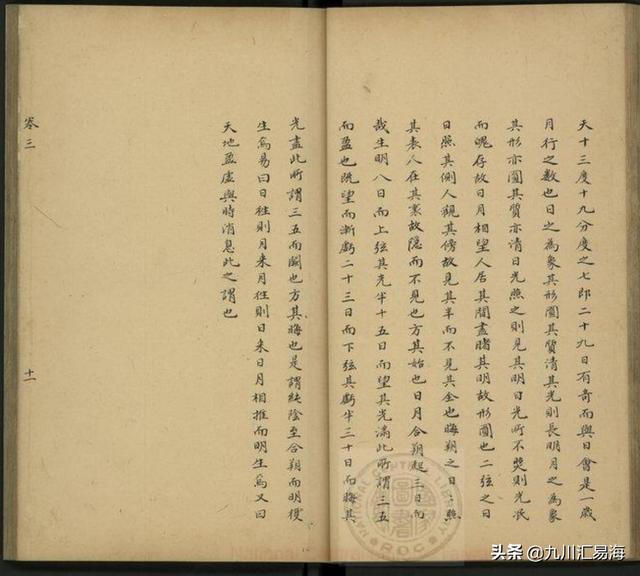 天十三度十九分度之七即二十九日有奇而與日會是一歲
月行之數也日之為象其形圓其質清其光則長明月之為象
其形亦圓其質亦清日光照之則見其明日光所不及則光泯
而魄存故日月相望人居其間盡睹其明故形圓也二弦之日
日照其側人觀其傍故見其半而不見其全也晦朔之日日照
其表人在其裏故隱而不見也方其始也日月合朔起三日而
哉生明八日而上弦其光半十五日而望其光滿此所謂三五
而盈也既望而漸虧二十三日而下弦其虧半三十日而晦其
光盡此所謂三五而闕也方其晦也是謂純陰至合朔而明復
生焉易曰日往則月來月往則日來日月相推而明生焉又曰
天地盈虛與時消息此之謂也
卷三
十一
頭条 @九川汇易海